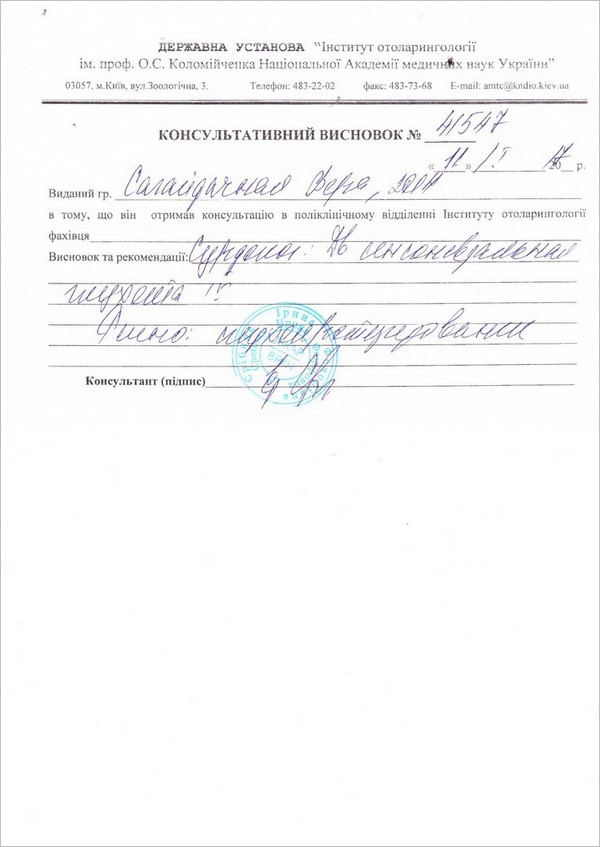 ДЕРЖАВНА УСТАНОВА “Інститут отоларингології
ім. проф. О.С. Коломійченка Національної Академії медичних наук України”
03057, м.Київ, вул.Зоологічна, 3. Телефон: 483-22-02 факс: 483-73-68 E-mail: amtc@kndio.kiev.ua
КОНСУЛЬТАТИВНИЙ ВИСНОВОК № 41547
« 11 » / 5 2017 р.
Виданий гр. Сагайдачная Вера,
в тому, що він отримав консультацію в поліклінічному відділенні Інституту отоларингології
фахівця
Висновок та рекомендації: Сурдолог: сенсоневральная
IV
Консультант (підпис)